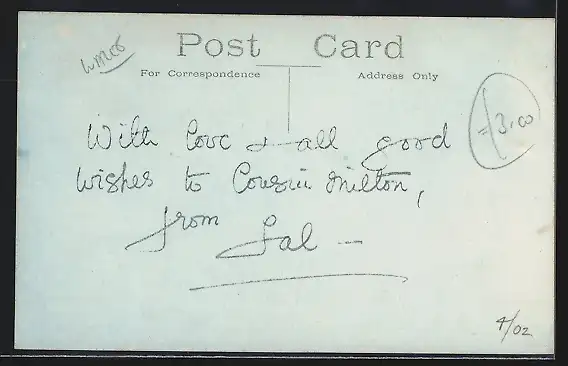 Post Card
For Correspondence
Address Only
£3.00
With love & all good
wishes to Cousin Milton,
from Sal —
4/02